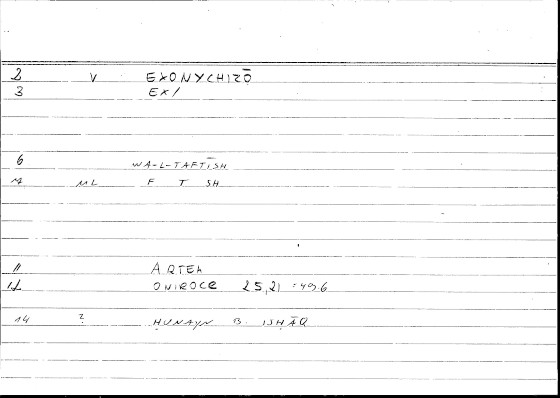 2 V EXONYCHIZŌ
3 EX/
6 WA-L-TAFTĪSH
7 ML F T SH
11 ARTEM
12 ONIROCR 25,21 = 49.6
14 ? ḤUNAYN B. ISḤĀQ